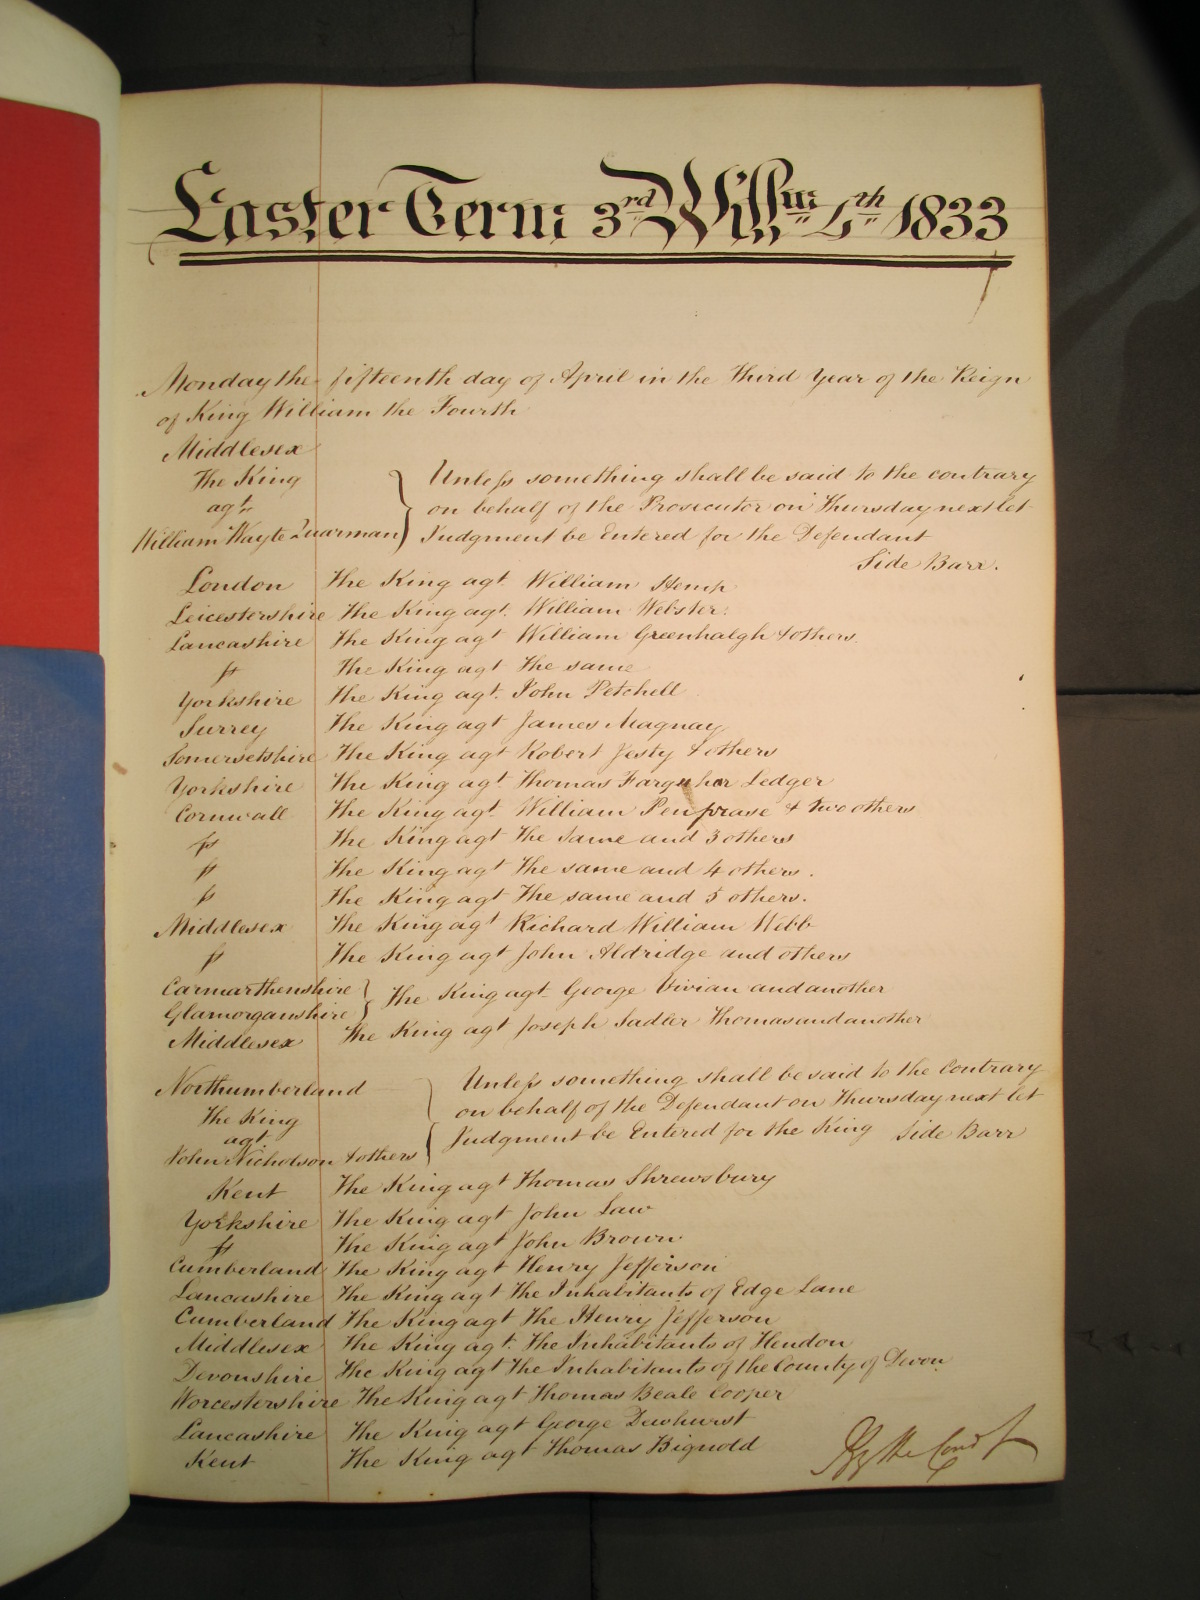 Easter Term 3rd Willm 4th 1833
Monday the fifteenth day of April in the Third Year of the Reign
of King William the Fourth
Middlesex
The King
agt
William Wayte Quarman
Unless something shall be said to the contrary
on behalf of the Prosecutor on Thursday next let
Judgment be Entered for the Defendant
Side Barr.
London The King agt William Hemp
Leicestershire The King agt. William Webster.
Lancashire The King agt William Greenhalgh & others
The King agt The same
Yorkshire The King agt. John Petchell
Surrey The King agt James Magnay
Somersetshire The King agt Robert Jesty & others
Yorkshire The King agt. Thomas Farquhar Ledger
Cornwall The King agt. William Penprase & two others
The King agt The Same and 3 others
The King agt The same and 4 others.
The King agt The same and 5 others.
Middlesex The King agt Richard William Webb
The King agt John Aldridge and others
Carmarthenshire
Glamorganshire
The King agt George Vivian and another
Middlesex The King agt Joseph Sadler Thomas and another
Northumberland
The King
agt
John Nicholson & others
Unless something shall be said to the Contrary
on behalf of the Defendant on Thursday next let
Judgment be Entered for the King Side Barr
Kent The King agt Thomas Shrewsbury
Yorkshire The King agt John Law
The King agt John Brown.
Cumberland The King agt Henry Jefferson
Lancashire The King agt The Inhabitants of Edge Lane
Cumberland The King agt The Henry Jefferson
Middlesex The King agt. The Inhabitants of Hendon
Devonshire The King agt The Inhabitants of the County of Devon
Worcestershire The King agt Thomas Beale Cooper
Lancashire The King agt George Dewhurst
Kent The King agt Thomas Bignold
By the Court